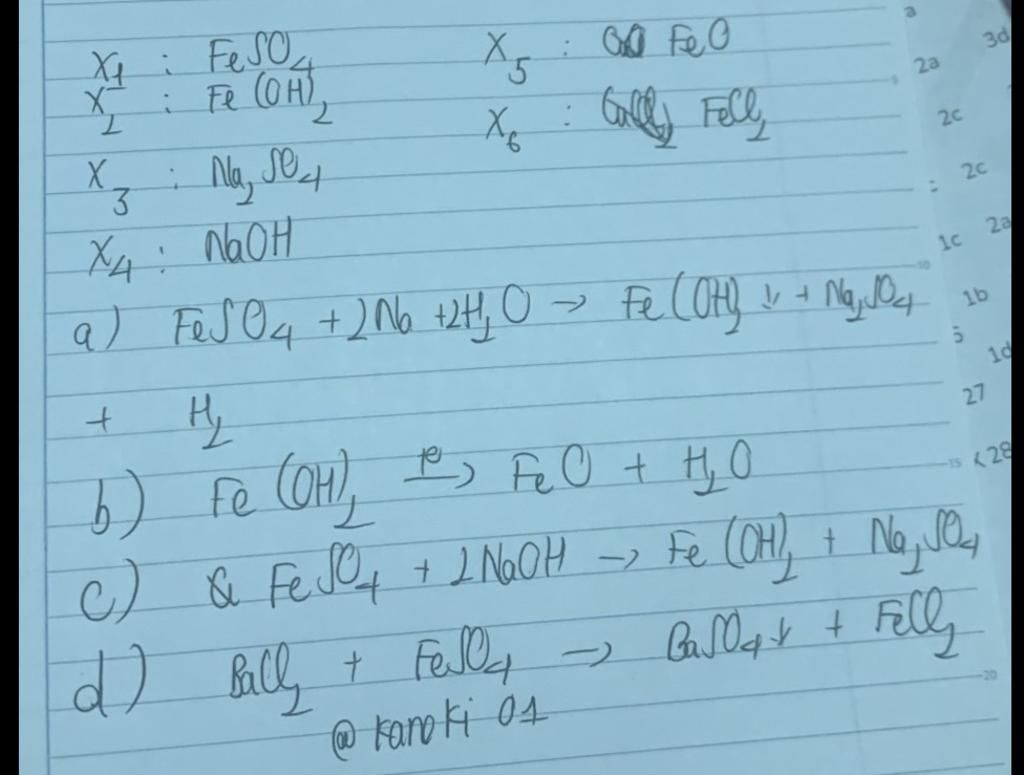 X₁ : FeSO₄
X₂ : Fe(OH)₂
X₃ : Na₂SO₄
X₄ : NaOH
X₅ : FeO
X₆ : FeCl₂
a) FeSO₄ + 2Na + 2H₂O → Fe(OH)₂ ↓ + Na₂SO₄
+ H₂
b) Fe(OH)₂ →(t°) FeO + H₂O
c) FeSO₄ + 2NaOH → Fe(OH)₂ + Na₂SO₄
d) BaCl₂ + FeSO₄ → BaSO₄↓ + FeCl₂
@kanoki 01
a
3d
2a
2c
2c
2a
1c
1b
5
1d
27
15
<28
20